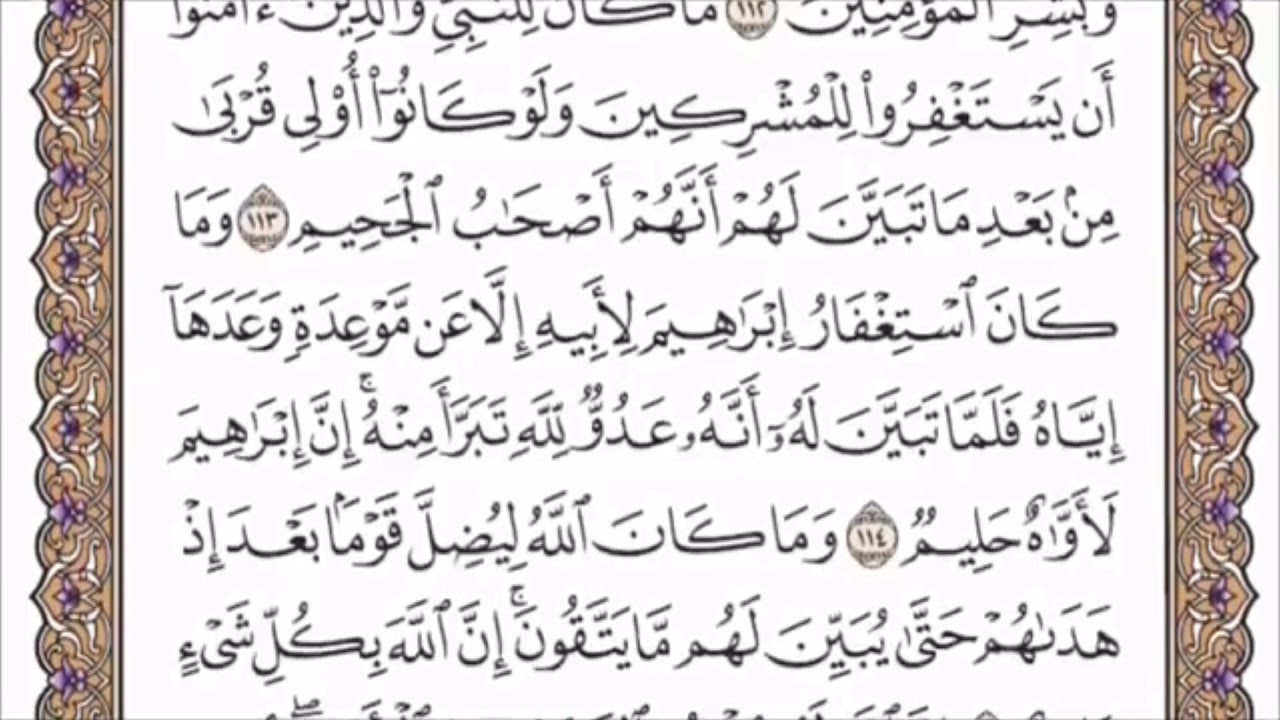 وَبَشِّرِ ٱلۡمُؤۡمِنِينَ ١١٢ مَا كَانَ لِلنَّبِيِّ وَٱلَّذِينَ ءَامَنُوٓاْ
أَن يَسۡتَغۡفِرُواْ لِلۡمُشۡرِكِينَ وَلَوۡ كَانُوٓاْ أُوْلِي قُرۡبَىٰ
مِنۢ بَعۡدِ مَا تَبَيَّنَ لَهُمۡ أَنَّهُمۡ أَصۡحَٰبُ ٱلۡجَحِيمِ ١١٣ وَمَا
كَانَ ٱسۡتِغۡفَارُ إِبۡرَٰهِيمَ لِأَبِيهِ إِلَّا عَن مَّوۡعِدَةٖ وَعَدَهَآ
إِيَّاهُ فَلَمَّا تَبَيَّنَ لَهُۥٓ أَنَّهُۥ عَدُوّٞ لِّلَّهِ تَبَرَّأَ مِنۡهُۚ إِنَّ إِبۡرَٰهِيمَ
لَأَوَّٰهٌ حَلِيمٞ ١١٤ وَمَا كَانَ ٱللَّهُ لِيُضِلَّ قَوۡمَۢا بَعۡدَ إِذۡ
هَدَىٰهُمۡ حَتَّىٰ يُبَيِّنَ لَهُم مَّا يَتَّقُونَۚ إِنَّ ٱللَّهَ بِكُلِّ شَيۡءٍ